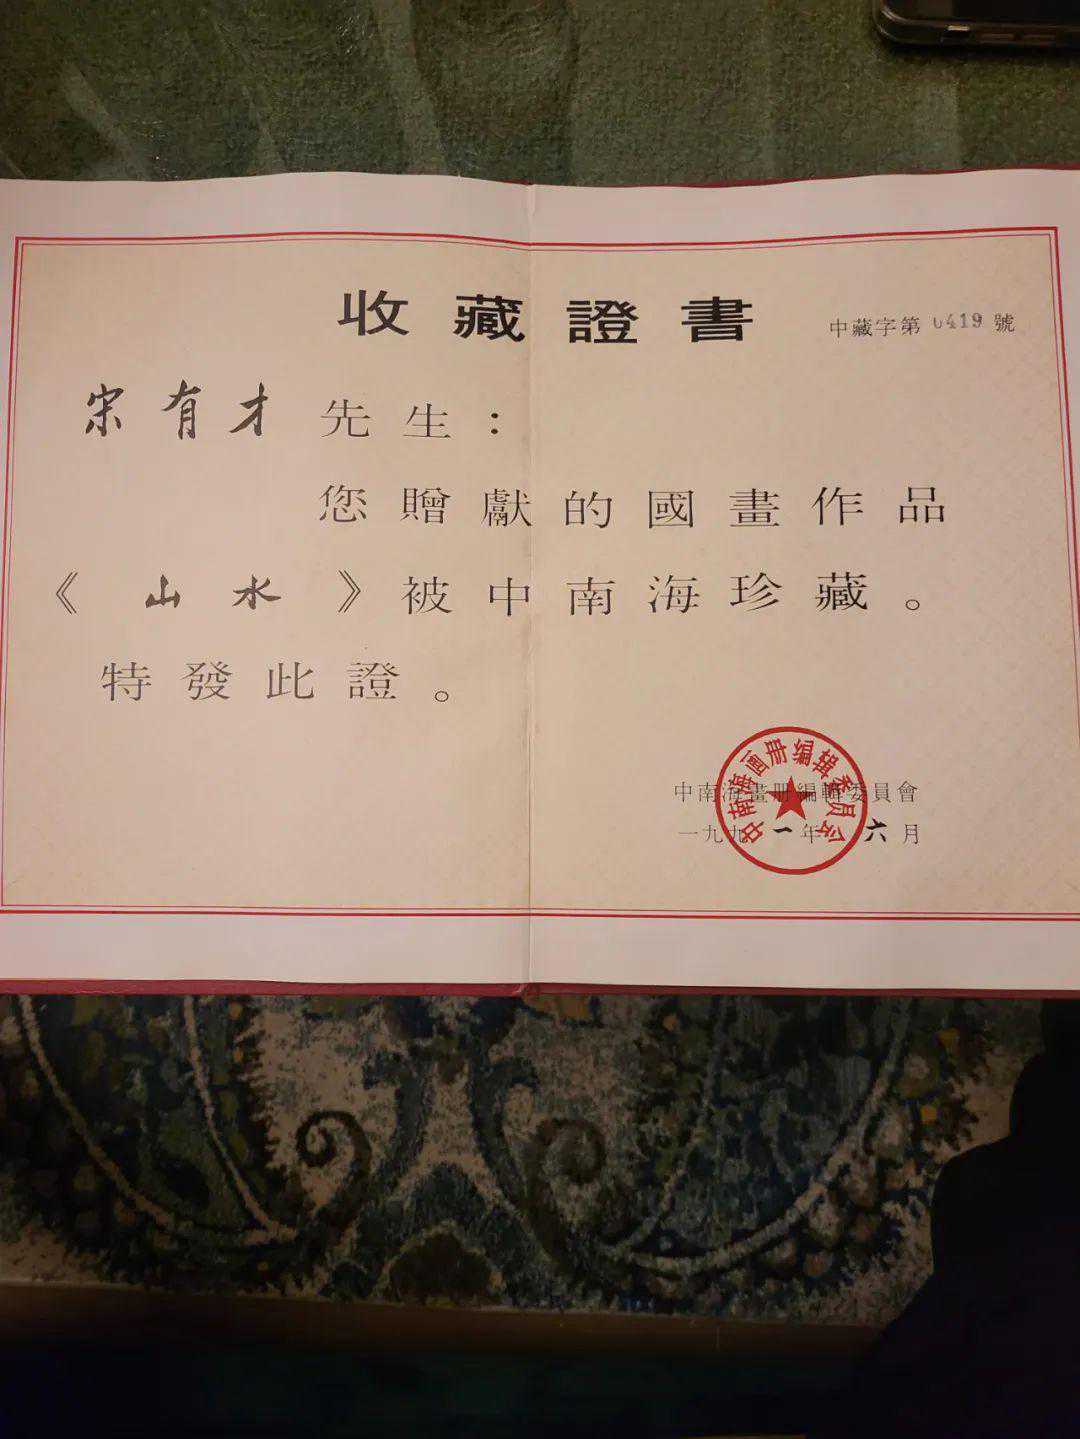 收藏證書
中藏字第0419號
宋有才先生：
您贈獻的國畫作品
《山水》被中南海珍藏。
特發此證。
中南海畫册編輯委員會
一九九一年六月
中南海画册编辑委员会